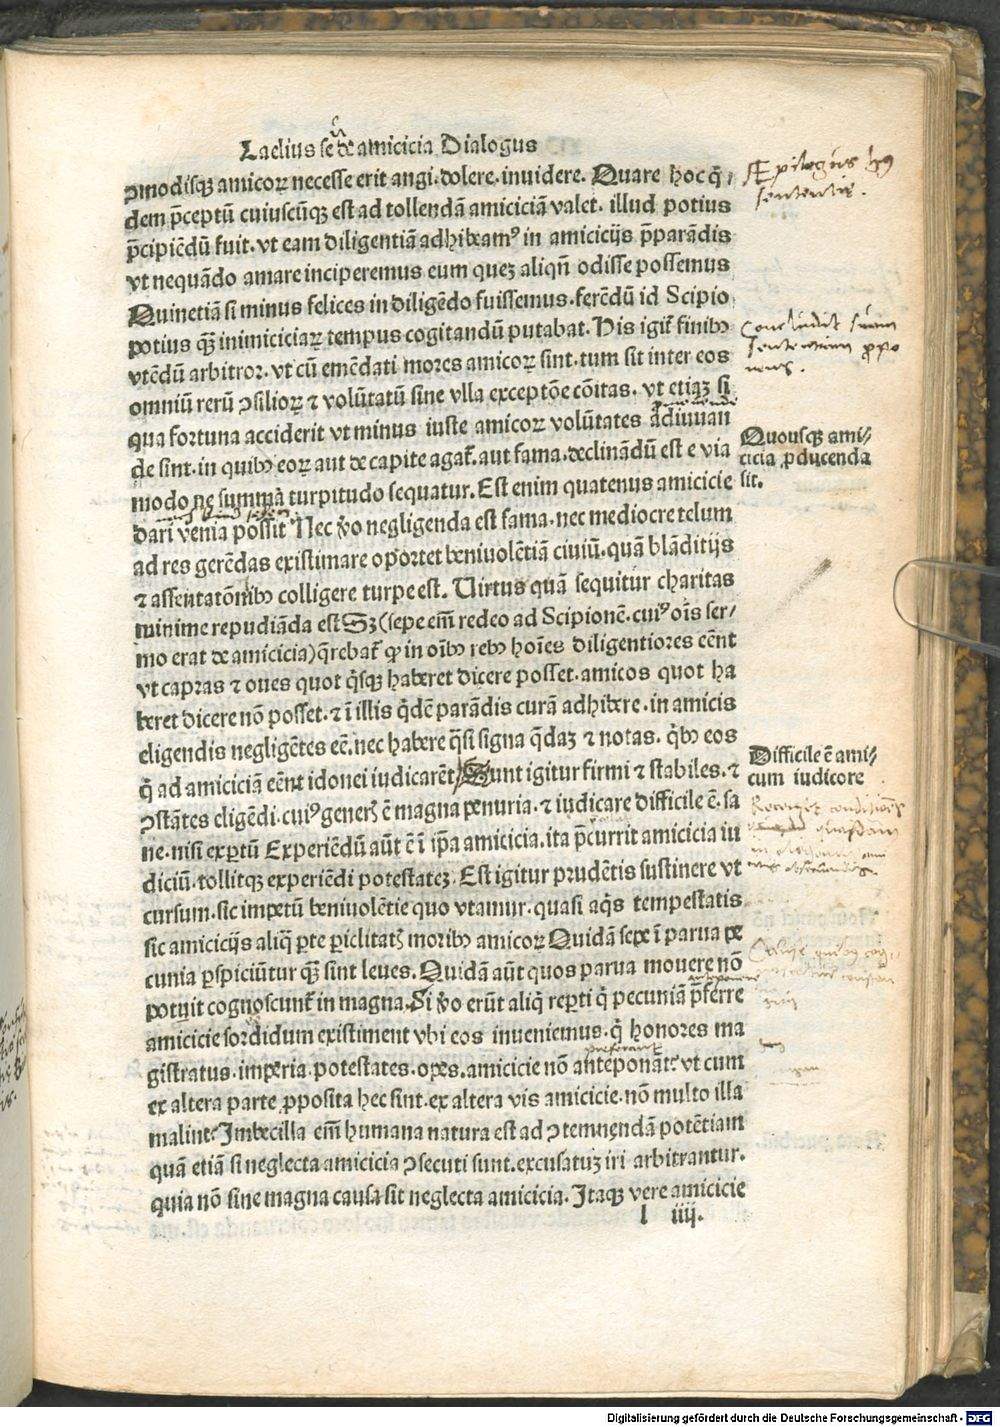 Laelius seu de amicicia Dialogus
ꝯmodisqꝫ amicoꝝ necesse erit angi. dolere. inuidere. Quare hoc q̄,
dem p̄ceptū cuiuscūqꝫ est ad tollendā amiciciā valet. illud potius
p̄cipiēdū fuit. vt eam diligentiā adhibeamꝰ in amicicijs p̄parādis
vt nequādo amare inciperemus eum queꝫ aliqn̄ odisse possemus
Quinetiā si minus felices in diligēdo fuissemus. ferēdū id Scipio
potius qꝫ inimiciciaꝝ tempus cogitandū putabat. His igit̄ finibꝫ
vtēdū arbitror. vt cū emēdati mores amicoꝝ sint. tum sit inter eos
omniū rerū ꝯsilioꝝ ⁊ volūtatū sine vlla exceptōe cōitas. vt etiaꝫ si
qua fortuna acciderit vt minus iuste amicoꝝ volūtates adiuuan
de sint. in quibꝫ eoꝝ aut de capite agat̄. aut fama. declinādū est e via
modo ne summa turpitudo sequatur. Est enim quatenus amicicie
dari venia possit Nec v̄o negligenda est fama. nec mediocre telum
ad res gerēdas existimare oportet beniuolētiā ciuiū. quā blāditijs
⁊ assentatōnibꝫ colligere turpe est. Uirtus quā sequitur charitas
minime repudiāda est Sꝫ (sepe em̄ redeo ad Scipionē. cuiꝰ oīs ser/
mo erat de amicicia) q̄rebat̄ ꝙ in oībꝫ rebꝫ hoīes diligentiores eēnt
vt capras ⁊ oues quot q̄sqꝫ haberet dicere posset. amicos quot ha
beret dicere nō posset. ⁊ ī illis q̄dē parādis curā adhibere. in amicis
eligendis negligētes eē. nec habere q̄si signa q̄daꝫ ⁊ notas. q̄bꝫ eos
q̄ ad amiciciā eēnt idonei iudicarēt Sunt igitur firmi ⁊ stabiles. ⁊
ꝯstātes eligēdi. cuiꝰ generꝭ ē magna penuria. ⁊ iudicare difficile ē. sa
ne. nisi exꝑtū Experiēdū aūt ē ī ip̄a amicicia. ita p̄currit amicicia iu
diciū. tollitqꝫ experiēdi potestateꝫ. Est igitur prudētis sustinere vt
cursum. sic impetū beniuolētie quo vtamur. quasi aq̄s tempestatis
sic amicicijs aliq̄ ꝑte ꝑiclitatꝭ moribꝫ amicoꝝ Quidā sepe ī parua pe
cunia ꝑspiciūtur qꝫ sint leues. Quidā aūt quos parua mouere nō
potuit cognoscunt̄ in magna. Si v̄o erūt aliq̄ reꝑti q̄ pecuniā p̄ferre
amicicie sordidum existiment vbi eos inueniemus. q̄ honores ma
gistratus. imperia. potestates. opes. amicicie nō anteponāt. vt cum
ex altera parte ꝓposita hec sint. ex altera vis amicicie. nō multo illa
malint. Imbecilla em̄ humana natura est ad ꝯtemnendā potētiam
quā etiā si neglecta amicicia ꝯsecuti sunt. excusatuꝫ iri arbitrantur.
quia nō sine magna causa sit neglecta amicicia. Itaqꝫ vere amicicie
l iiij.
Epilogus
sententie.
Concludit suam
sententiam ꝓpo
nens.
Quousqꝫ ami/
cicia ꝓducenda
sit.
Difficile ē ami/
cum iudicore
Digitalisierung gefördert durch die Deutsche Forschungsgemeinschaft - DFG